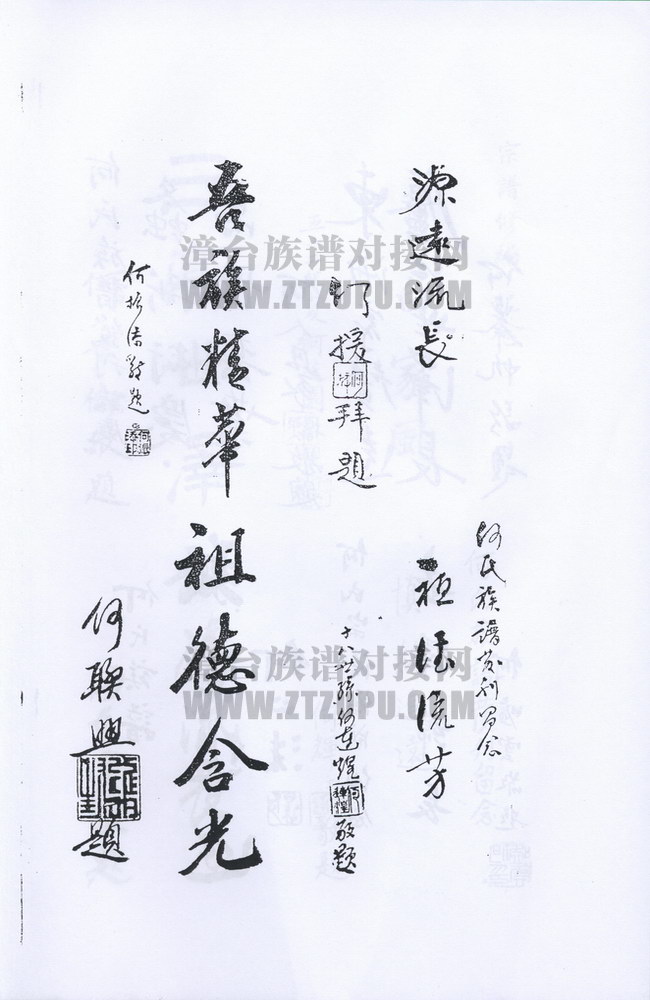 源遠流長
何援
拜題
吾族精華
何振清敬題
何氏族譜發刊留念
祖德流芳
十八世孫何連煌
敬題
祖德含光
何聯興
題
漳台族谱对接网
WWW.ZTZUPU.COM
漳台族谱对接网
WWW.ZTZUPU.COM